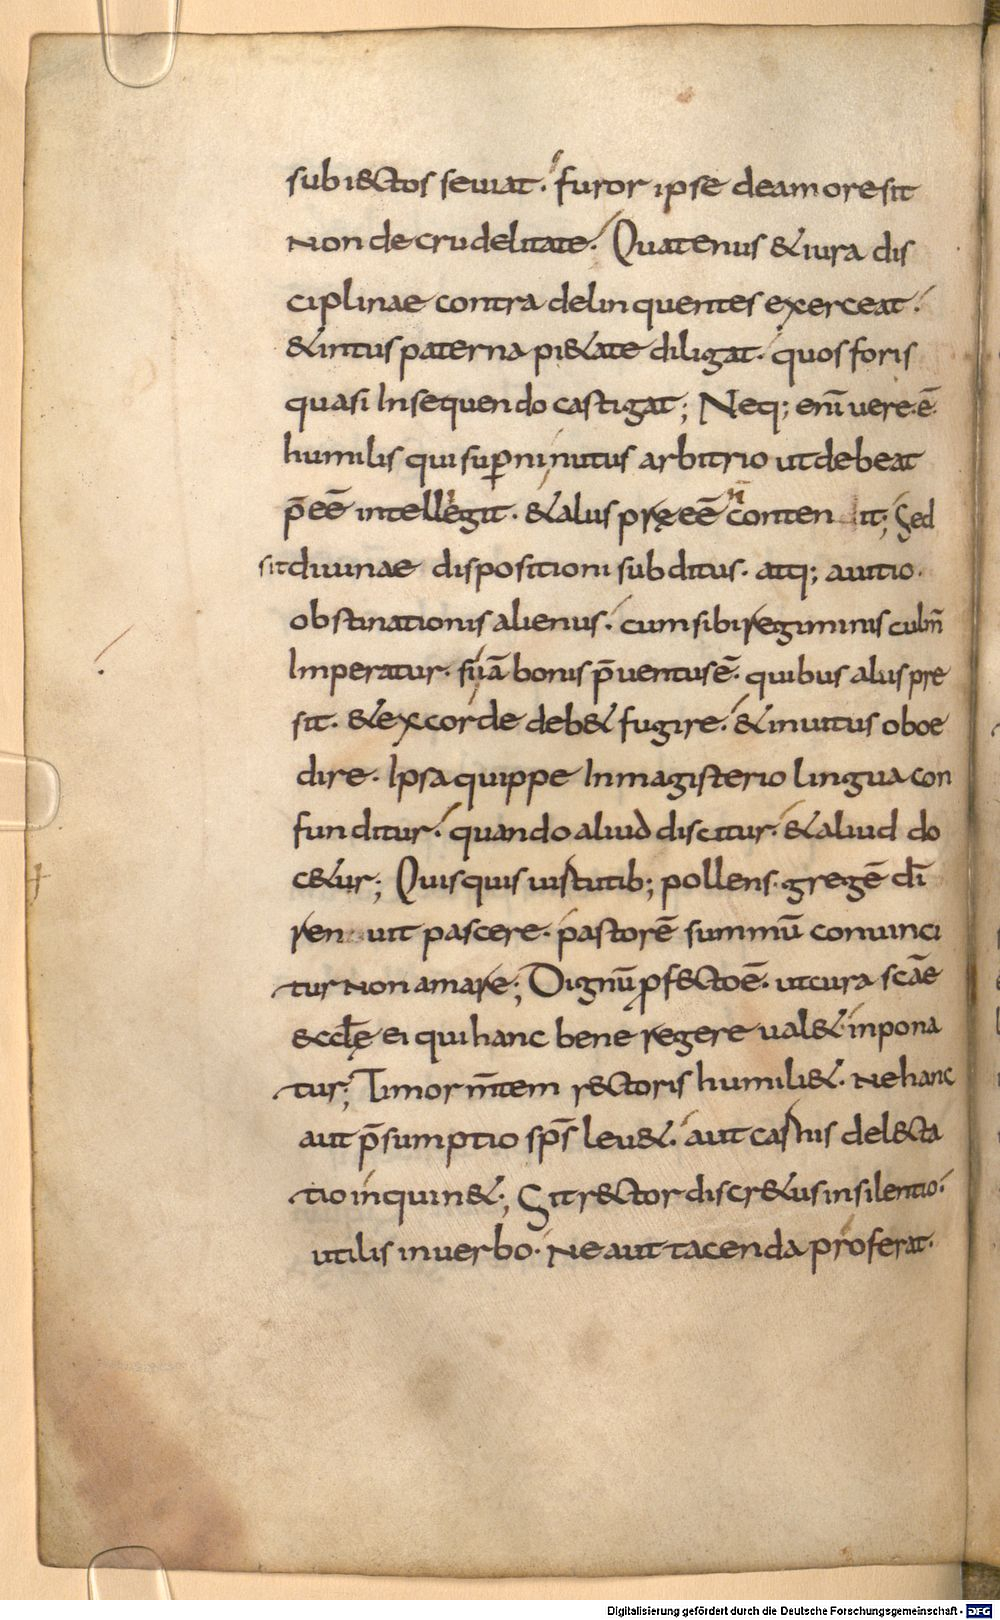 subiectos seuiat. furor ipse de amore sit
non de crudelitate. Quatenus & iura dis
ciplinae contra delinquentes exerceat.
& intus paterna pi&ate diligat. quos foris
quasi insequendo castigat; Neq; eni᷃ uere. ē.
humilis qui sup̄ni nutus arbitrio ut debeat
p̄eē̄ intellegit. & aliis pręeē̄ conten it; Sed
sit diuinae dispositioni subditus. atq; a uitio.
obstinationis alienus. cum sibi regiminis culm̄
Imperatur. si iā bonis p̄uentus ē. quibus aliis pre
sit. & ex corde deb& fugire. & inuitus oboe
dire. Ipsa quippe In magisterio lingua con
funditur. quando aliud discitur. & aliud do
c&ur; Quisquis uirtutib; pollens. gregē dī
ren uit pascere. pastorē summū conuinci
tur non amare; Dignū pfecto ē. ut cura scāe
eccłę ei qui hanc bene regere ual& inpona
tur; Timor m̄tem rectoris humili&. Ne hanc
aut p̄sumptio sp̄s leu&. aut carnis delecta
tio inquin&; Sit rector discr&us in silentio.
utilis in uerbo. Ne aut tacenda proferat.
Digitalisierung gefördert durch die Deutsche Forschungsgemeinschaft - DFG